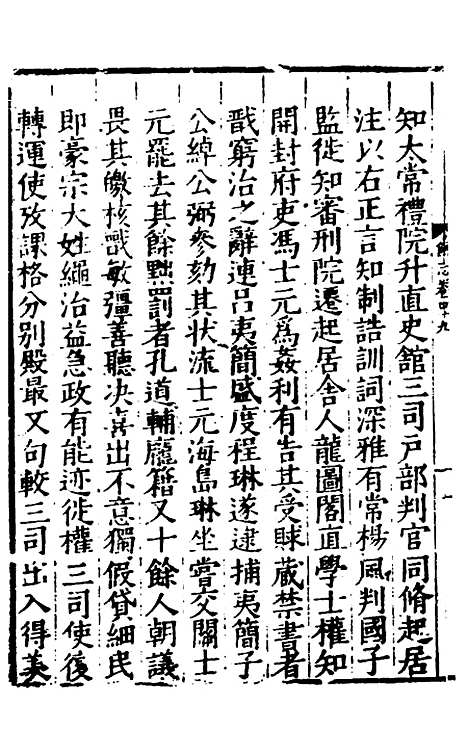 知太常禮院升直史館三司戶部判官同脩起居
注以右正言知制誥訓詞深雅有常楊風判國子
監徙知審刑院遷起居舍人龍圖閣直學士權知
開封府吏馮士元爲姦利有告其受賕藏禁書者
戩窮治之辭連呂夷簡盛度程琳遂逮捕夷簡子
公綽公弼參劾其状流士元海島琳坐嘗交關士
元罷去其餘黜罰者孔道輔龐籍又十餘人朝議
畏其皦核戩敏彊善聽决喜出不意獨假貸細民
即豪宗大姓繩治益急政有能迹徙權三司使復
轉運使攷課格分別殿最又句較三司出入得羙
志卷四十九